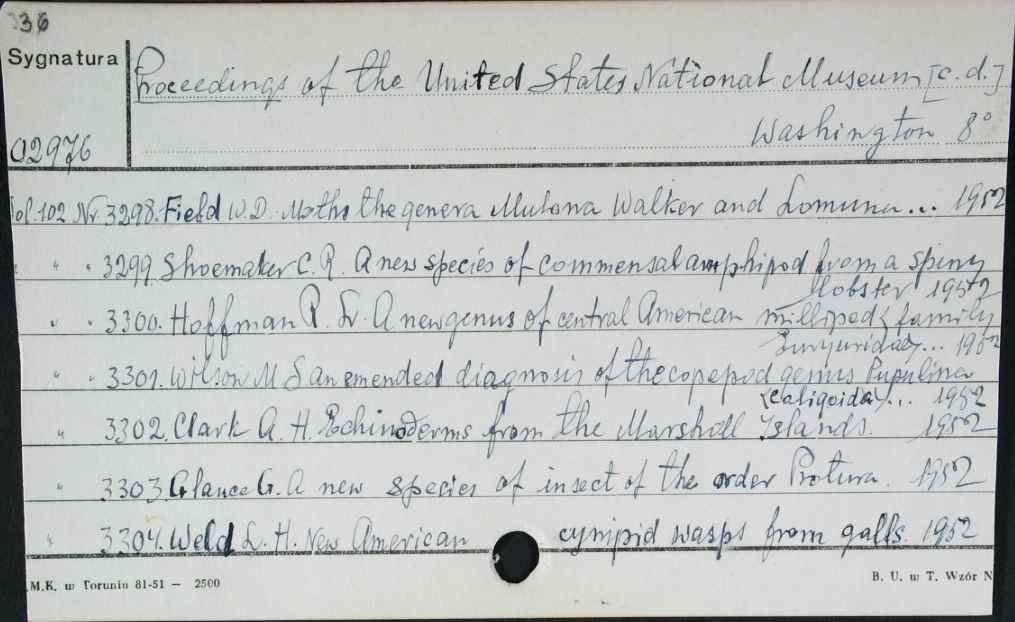 36
Sygnatura
Proceedings of the United States National Museum [c.d.]
Washington 8°
02976
Vol. 102 Nr 3298. Field W.D. Moths the genera Mulona Walker and Lomuna... 1952
" " 3299. Shoemaker C. R. A new species of commensal amphipod from a spiny
lobster 1952
" " 3300. Hoffman R. L. A new genus of central American milliped (family
Euryuridae)... 1952
" " 3301. Wilson M S an emended diagnosis of the copepod genus Pupulina
(Caligoida)... 1952
" 3302. Clark A. H. Echinoderms from the Marshall Islands. 1952
" 3303. Glance G. A new species of insect of the order Protura. 1952
" 3304. Weld L. H. New American cynipid wasps from galls. 1952
M.K. w Toruniu 81-51 — 2500
B. U. w T. Wzór N